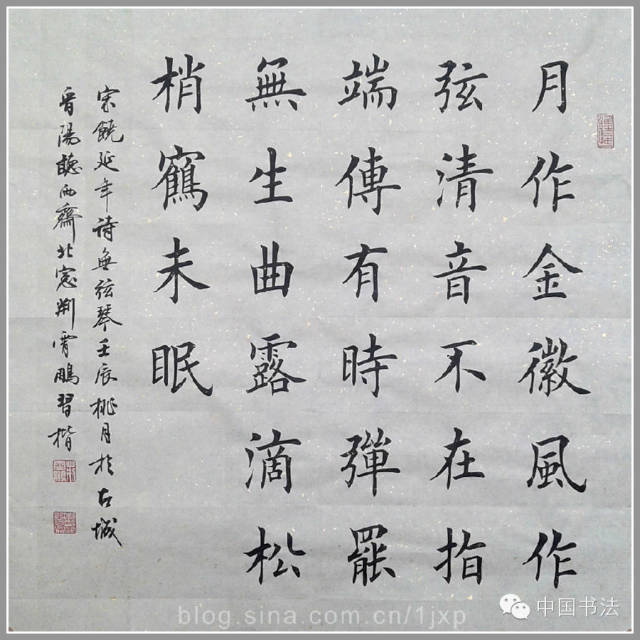 月作金徽風作
弦清音不在指
端傳有時彈罷
無生曲露滴松
梢鶴未眠
宋饒延年詩無弦琴壬辰桃月於古城
晋陽聽雨齋北窓荆霄鵬習楷
blog.sina.com.cn/1jxp
中国书法